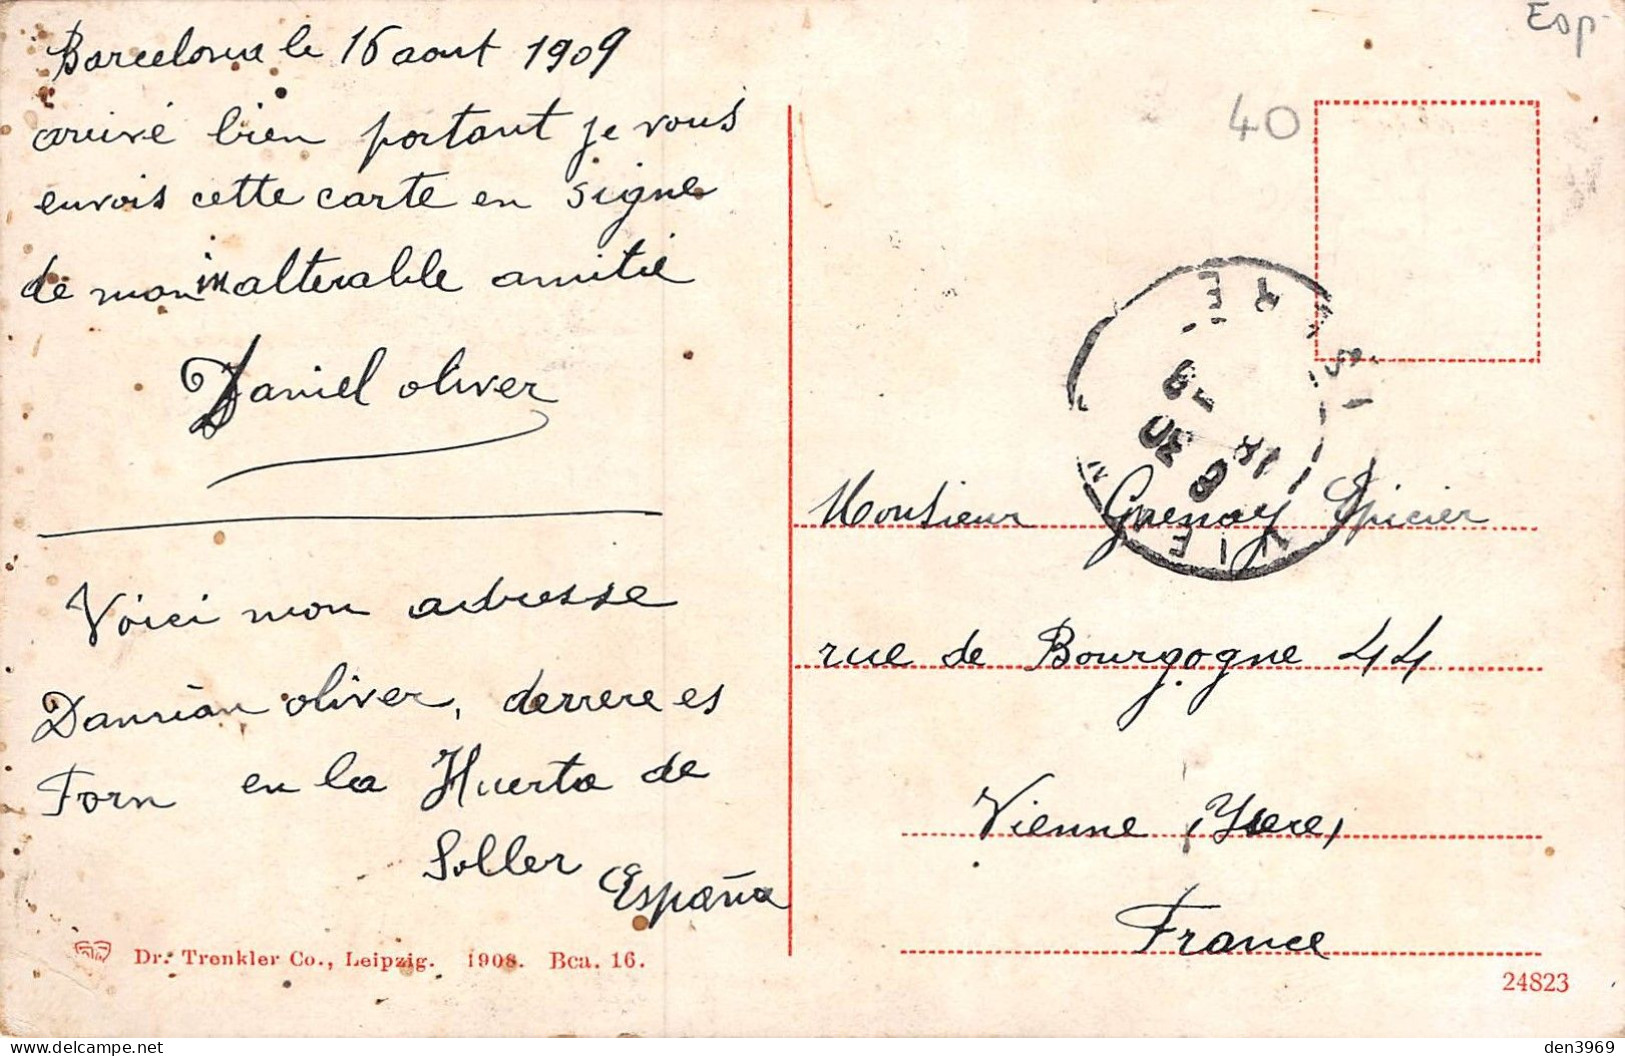 Barcelona le 16 aout 1909
arrivé bien portant je vous
envois cette carte en signe
de mon inalterable amitié
Daniel oliver
Voici mon adresse
Damián oliver, derrere es
Forn en la Huerta de
Soller
España
Dr. Trenkler Co., Leipzig. 1908. Bca. 16.
Esp
40
Monsieur Guenay Epicier
rue de Bourgogne 44
Vienne (Ysere)
France
24823
VIENNE
ISÈRE
8 30
18 -8
den3969